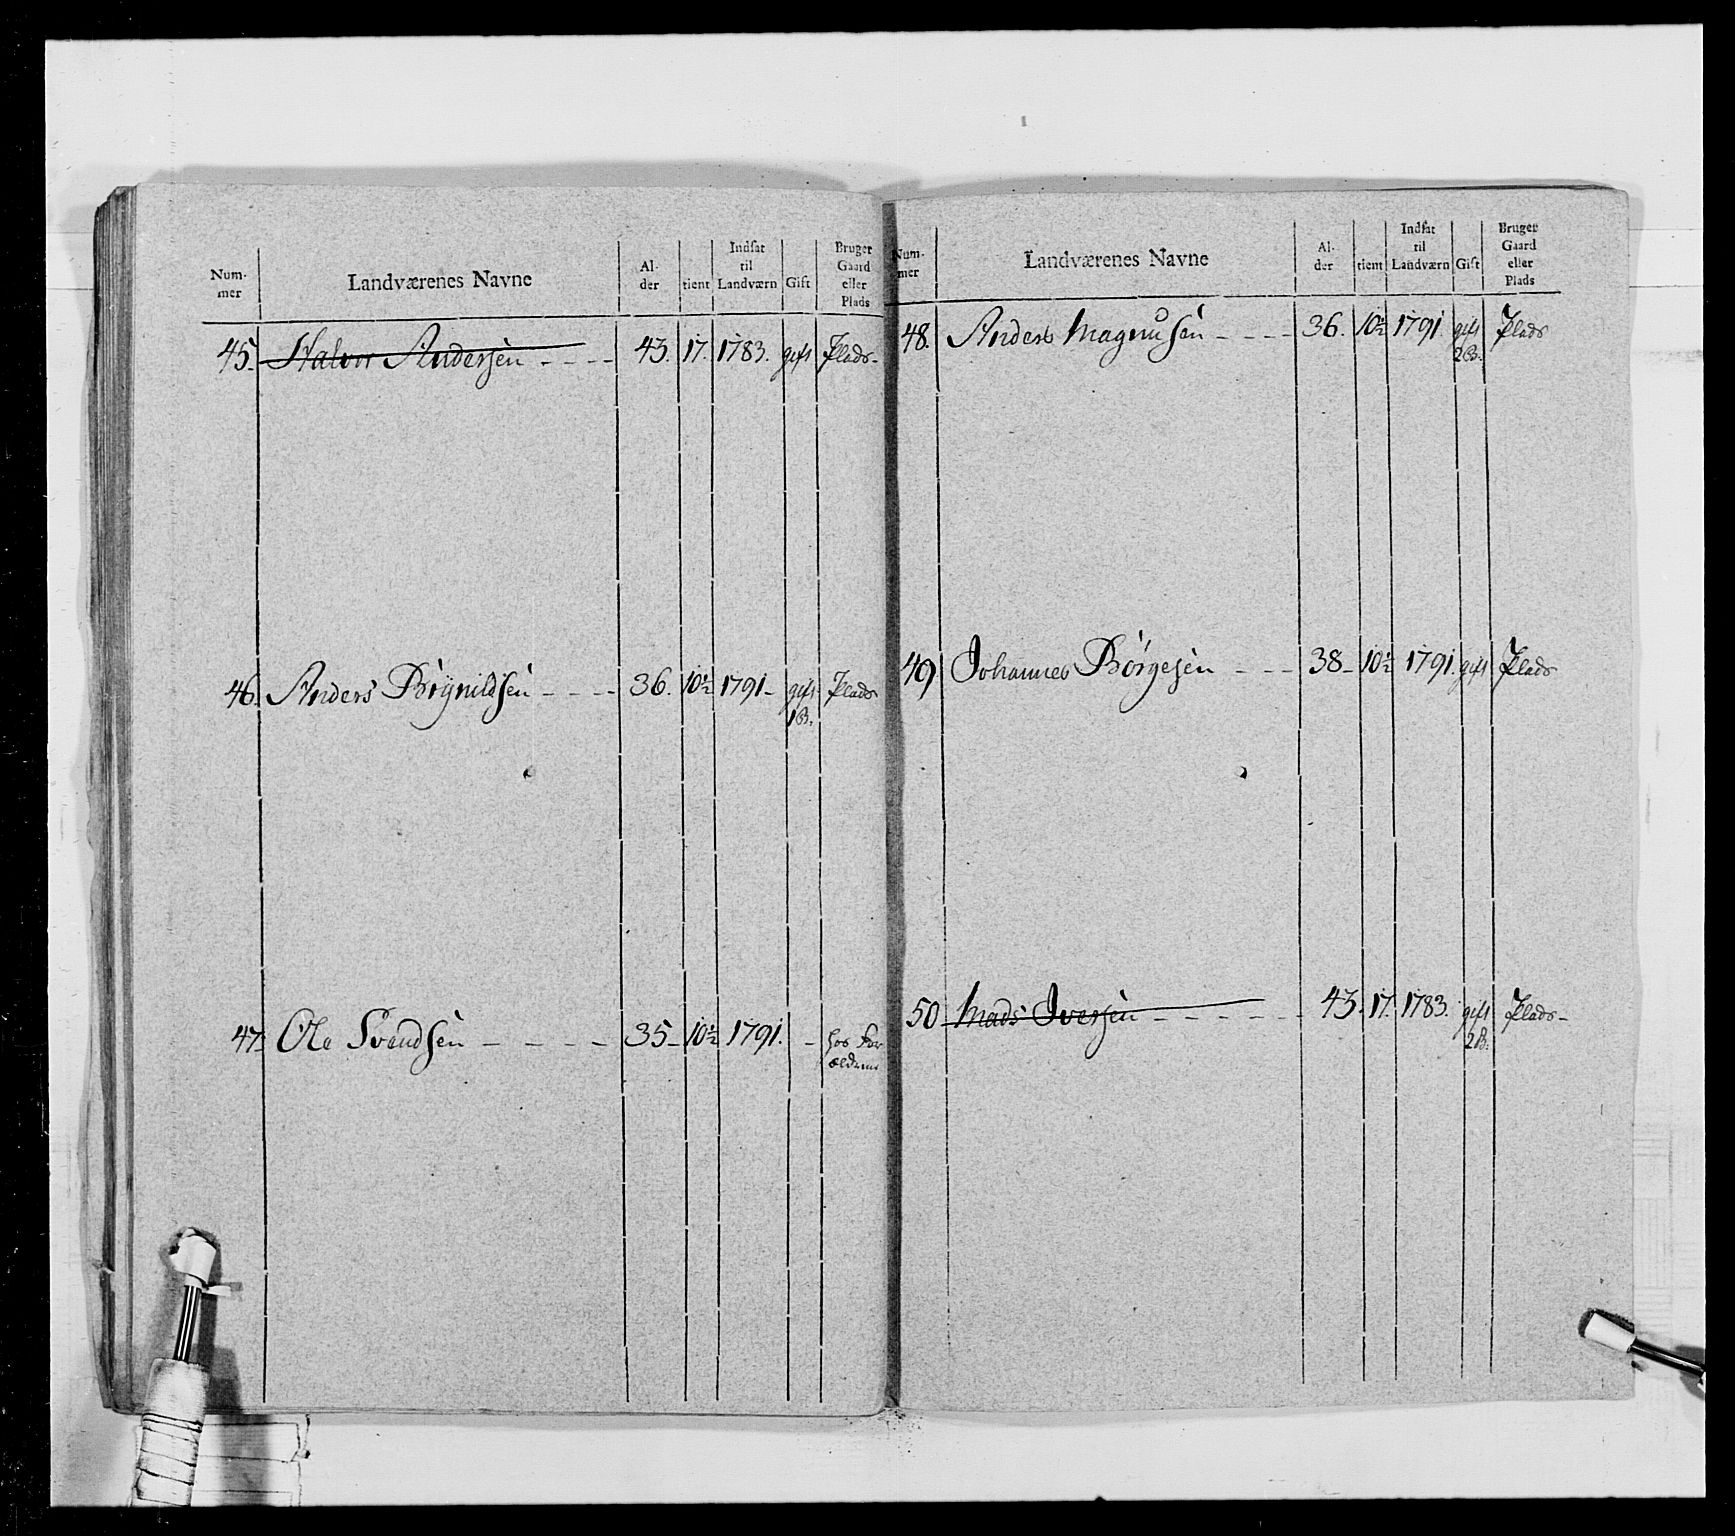 Num-mer | Landværenes Navne | Al-der | tient | Indsat til Landværn | Gift | Bruger Gaard eller Plads
45. Halvor Andersen - - - - 43. 17. 1783. gift Plads-
46. Anders Brynildsen - - - - 36. 10½ 1791- gift 1B. Plads
47. Ole Svendsen - - - - 35- 10½ 1791. - hos For ældrene
Num-mer | Landværenes Navne | Al-der | tient | Indsat til Landværn | Gift | Bruger Gaard eller Plads
48. Anders Magnusen - - - - 36. 10½ 1791 gift 2B. Plads
49 Johannes Börgesen - - - 38- 10½ 1791. gift Plads
50 Mads Iversen - - - - - 43. 17. 1783. gift 2B. Plads-